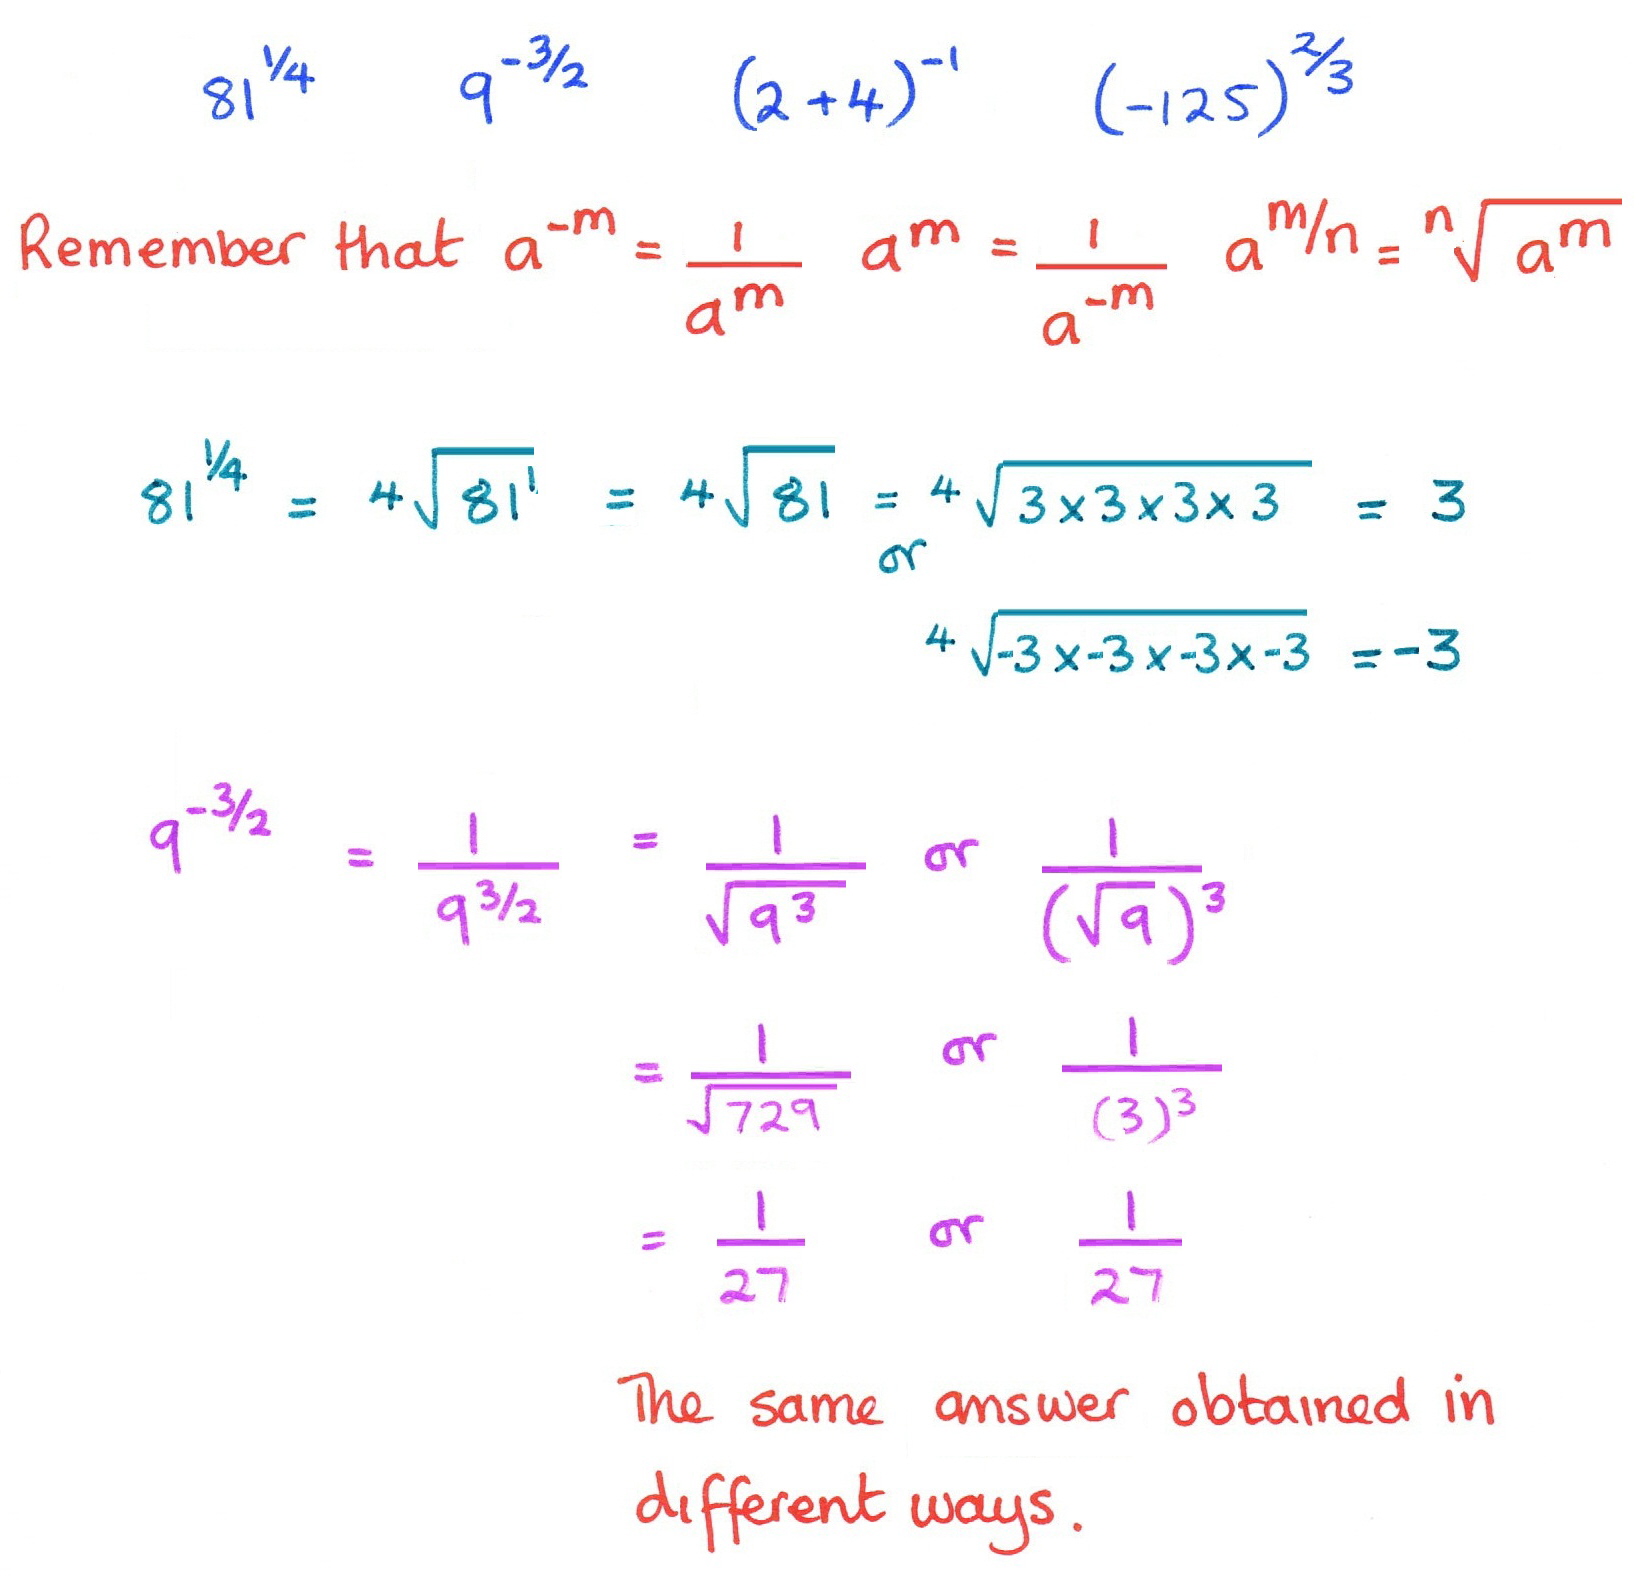 81^{1/4} 9^{-3/2} (2+4)^{-1} (-125)^{2/3}
Remember that a^{-m} = \frac{1}{a^{m}} a^{m} = \frac{1}{a^{-m}} a^{m/n} = \sqrt[n]{a^{m}}
81^{1/4} = \sqrt[4]{81^{1}} = \sqrt[4]{81} = \sqrt[4]{3×3×3×3} = 3
or
\sqrt[4]{-3×-3×-3×-3} = -3
9^{-3/2} = \frac{1}{9^{3/2}} = \frac{1}{\sqrt{9^{3}}} or \frac{1}{(\sqrt{9})^{3}}
= \frac{1}{\sqrt{729}} or \frac{1}{(3)^{3}}
= \frac{1}{27} or \frac{1}{27}
The same answer obtained in
different ways.